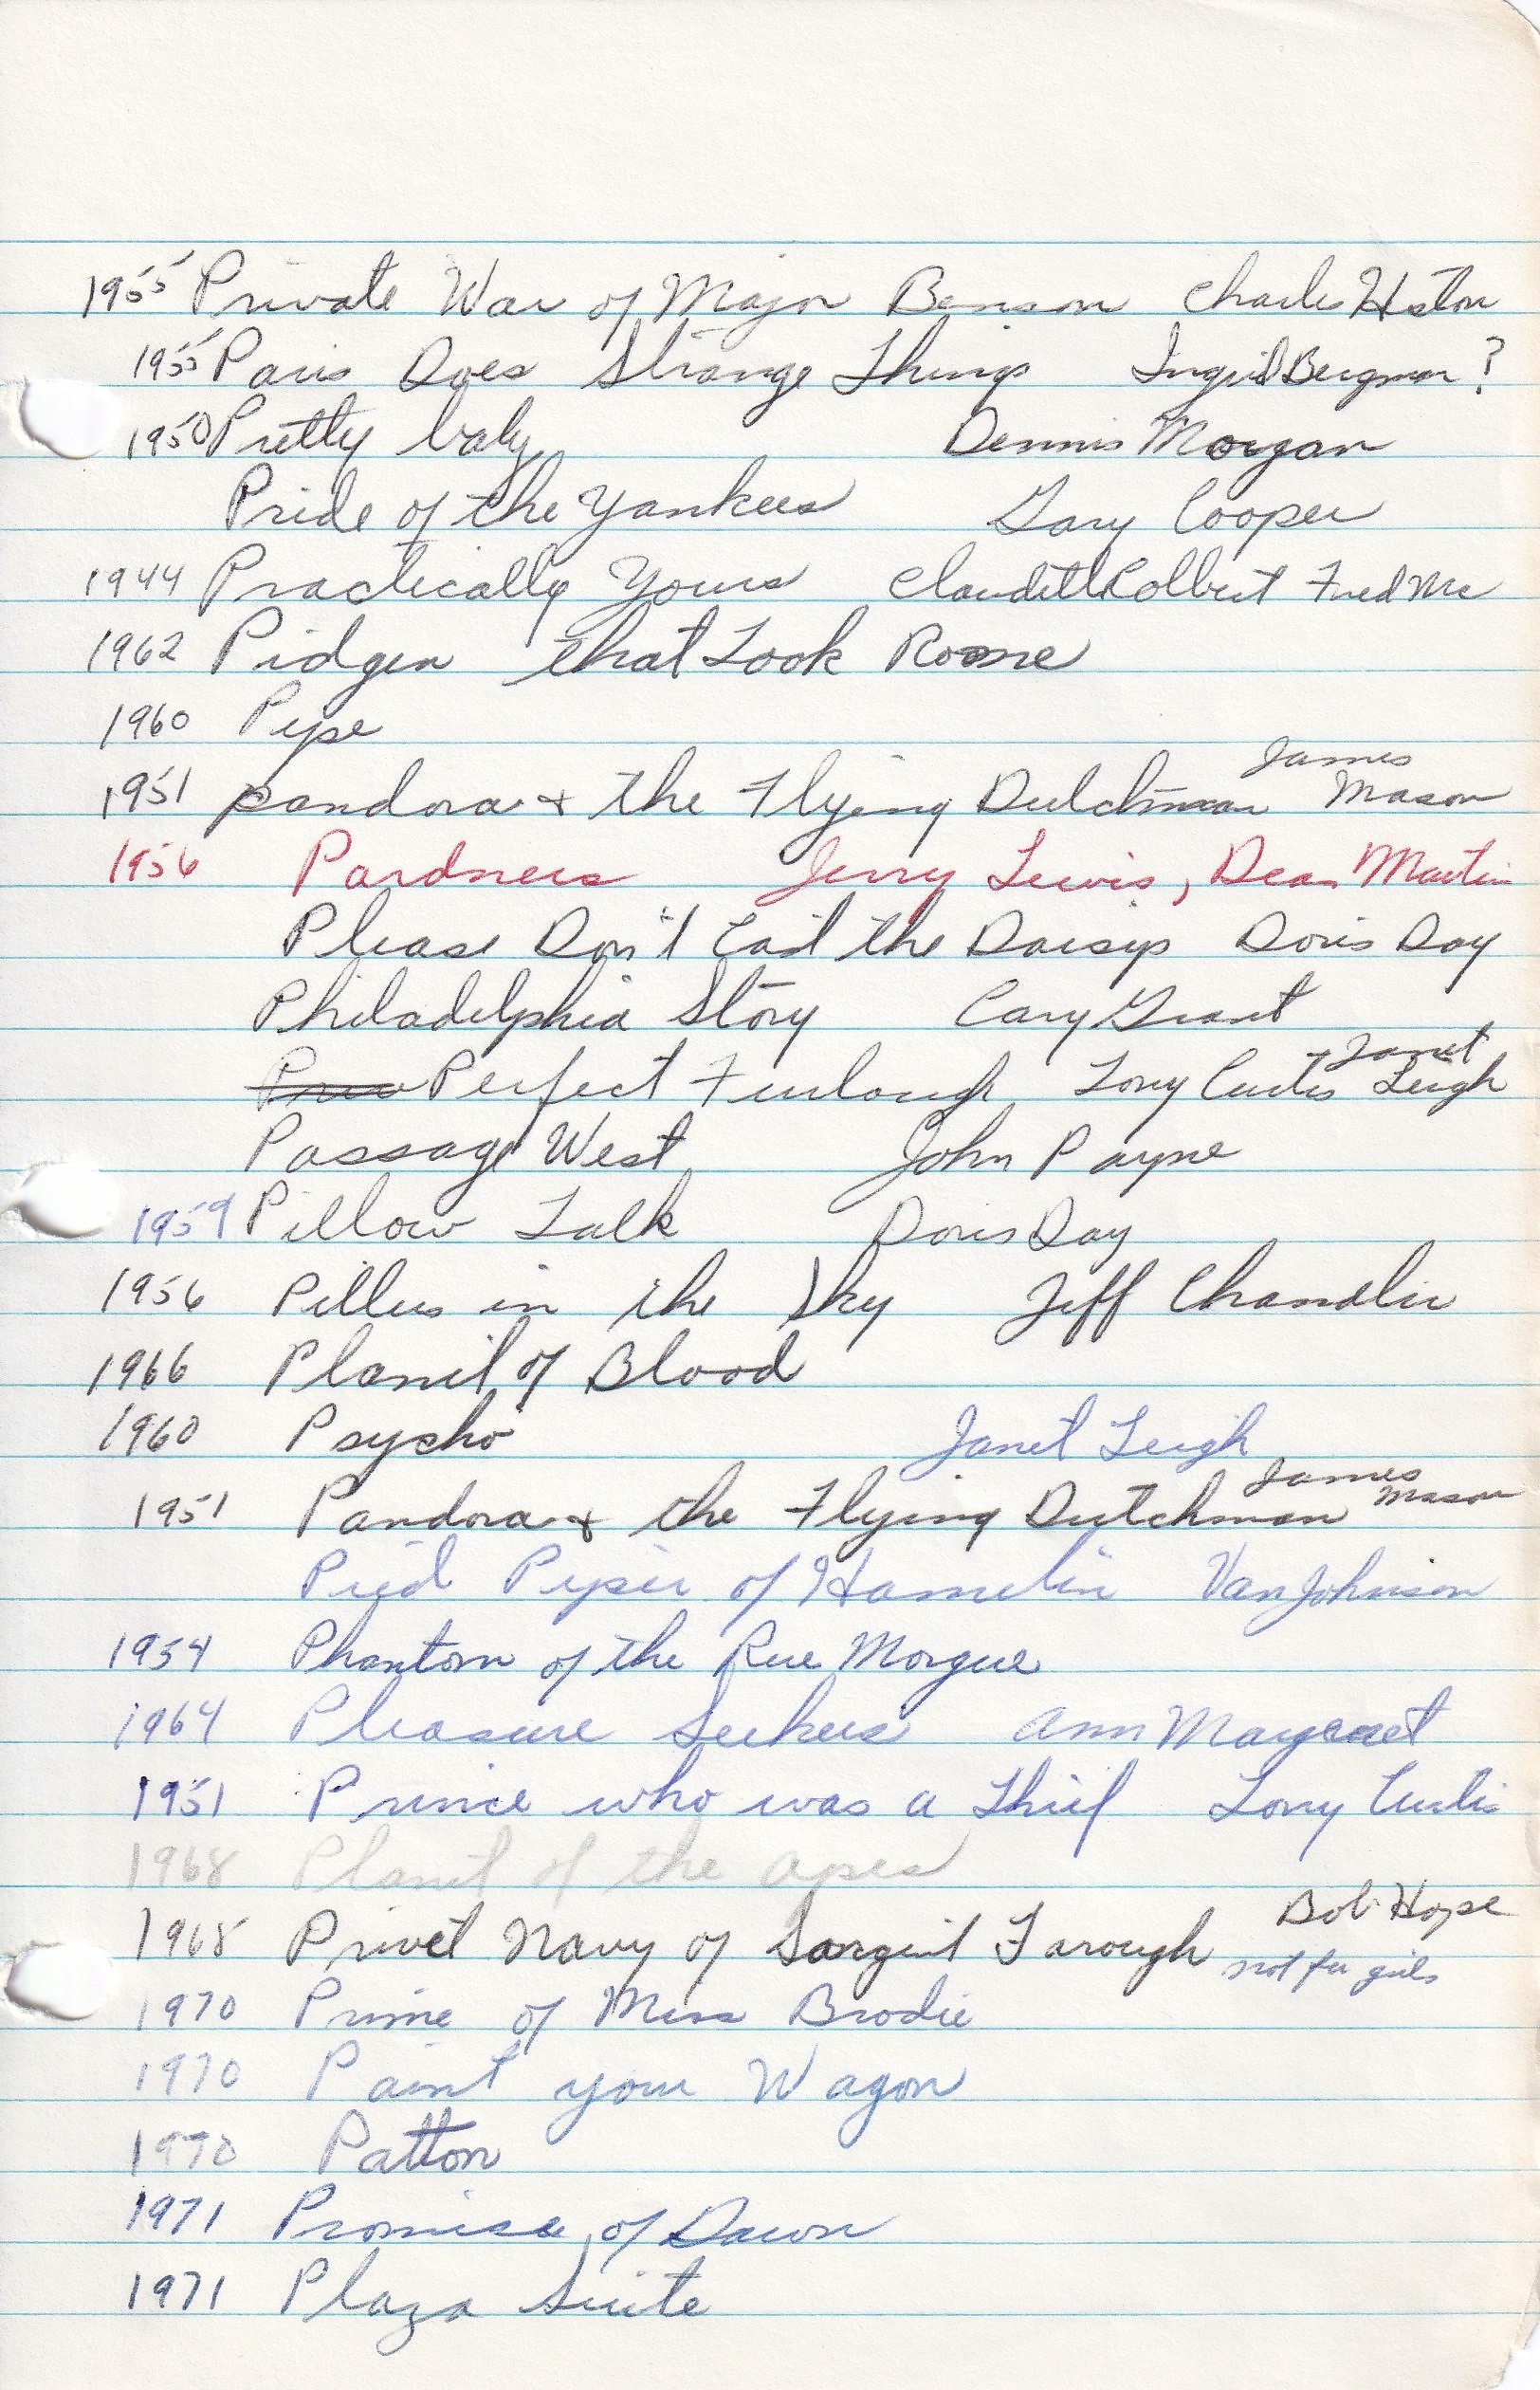 1955 Private War of Major Benson Charles Hston
1955 Paris Does Strange Things Ingrid Bergman?
1950 Pretty baby Dennis Morgan
Pride of the Yankees Gary Cooper
1944 Practically Yours Claudette Colbert Fred Mc
1962 Pidgen that Took Rome
1960 Pepe
1951 pandora & the Flying Dutchman James Mason
1956 Pardners Jerry Lewis, Dean Martin
Please Don't Eat the Daisys Doris Day
Philadelphia Story Cary Grant
Perfect Furlough Tony Curtis Janet Leigh
Passage West John Payne
1959 Pillow Talk Doris Day
1956 Pillers in the Sky Jeff Chandler
1966 Planet of Blood
1960 Psycho Janet Leigh
1951 Pandora & the Flying Dutchman James Mason
Pied Piper of Hamelin Van Johnson
1954 Phantom of the Rue Morgue
1964 Pleasure Seekers Ann Margaret
1951 Prince who was a Thief Tony Curtis
1968 Planet of the Apes
1968 Privet Navy of Sargent Farough Bob Hope
not for girls
1970 Prime of Miss Brodie
1970 Paint your Wagon
1970 Patton
1971 Promise of Dawn
1971 Plaza Suite